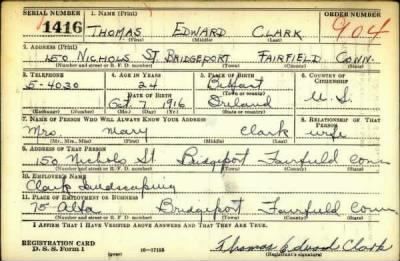 SERIAL NUMBER 1. NAME (Print) ORDER NUMBER
1416 THOMAS EDWARD CLARK 904
(First) (Middle) (Last)
2. ADDRESS (Print)
150 NICHOLS ST BRIDGEPORT FAIRFIELD CONN.
(Number and street or R. F. D. number) (Town) (County) (State)
3. TELEPHONE 4. AGE IN YEARS 5. PLACE OF BIRTH 6. COUNTRY OF CITIZENSHIP
5-4030 24 Belfast
DATE OF BIRTH (Town or county)
Oct. 7 1916 Ireland U.S.
(Exchange) (Number) (Mo.) (Day) (Yr.) (State or country)
7. NAME OF PERSON WHO WILL ALWAYS KNOW YOUR ADDRESS 8. RELATIONSHIP OF THAT PERSON
Mrs. Mary Clark wife
(Mr., Mrs., Miss) (First) (Middle) (Last)
9. ADDRESS OF THAT PERSON
150 Nichols St. Bridgeport Fairfield Conn
(Number and street or R. F. D. number) (Town) (County) (State)
10. EMPLOYER'S NAME
Clark Landscaping
11. PLACE OF EMPLOYMENT OR BUSINESS
75 Bridgeport Fairfield Conn
(Number and street or R. F. D. number) (Town) (County) (State)
I AFFIRM THAT I HAVE VERIFIED ABOVE ANSWERS AND THAT THEY ARE TRUE.
REGISTRATION CARD
D. S. S. Form 1 (over) 16-17105 Thomas Edward Clark
(Registrant's signature)